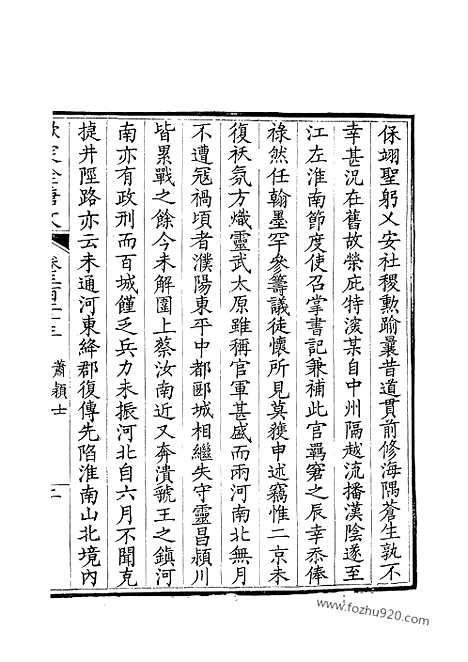 保翊聖躬乂安社稷勲踰曩昔道貫前修海隅蒼生孰不
幸甚況在舊故榮庇特滨某自中州隔越流播漢陰遂至
江左淮南節度使召掌書記兼補此官羇窘之辰幸忝俸
祿然任翰墨罕參籌議徒懷所見莫獲申述竊惟二京未
復祆氛方熾靈武太原雖稱官軍甚盛而兩河南北無月
不遭冦禍頃者濮陽東平中都郾城相繼失守靈昌潁川
皆累戰之餘今未解圍上蔡汝南近又奔潰虢王之鎮河
南亦有政刑而百城僅乏兵力未振河北自六月不聞克
㨗井陘路亦云未通河東絳郡復傳先陷淮南山北境內
欽定全唐文 卷三百二十三 蕭潁士 二
www.fozhu920.com